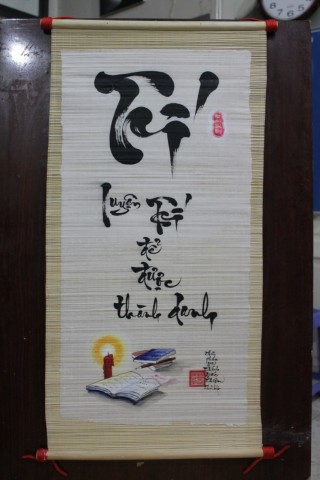 Trí
Luyện Trí
để
được
thành danh